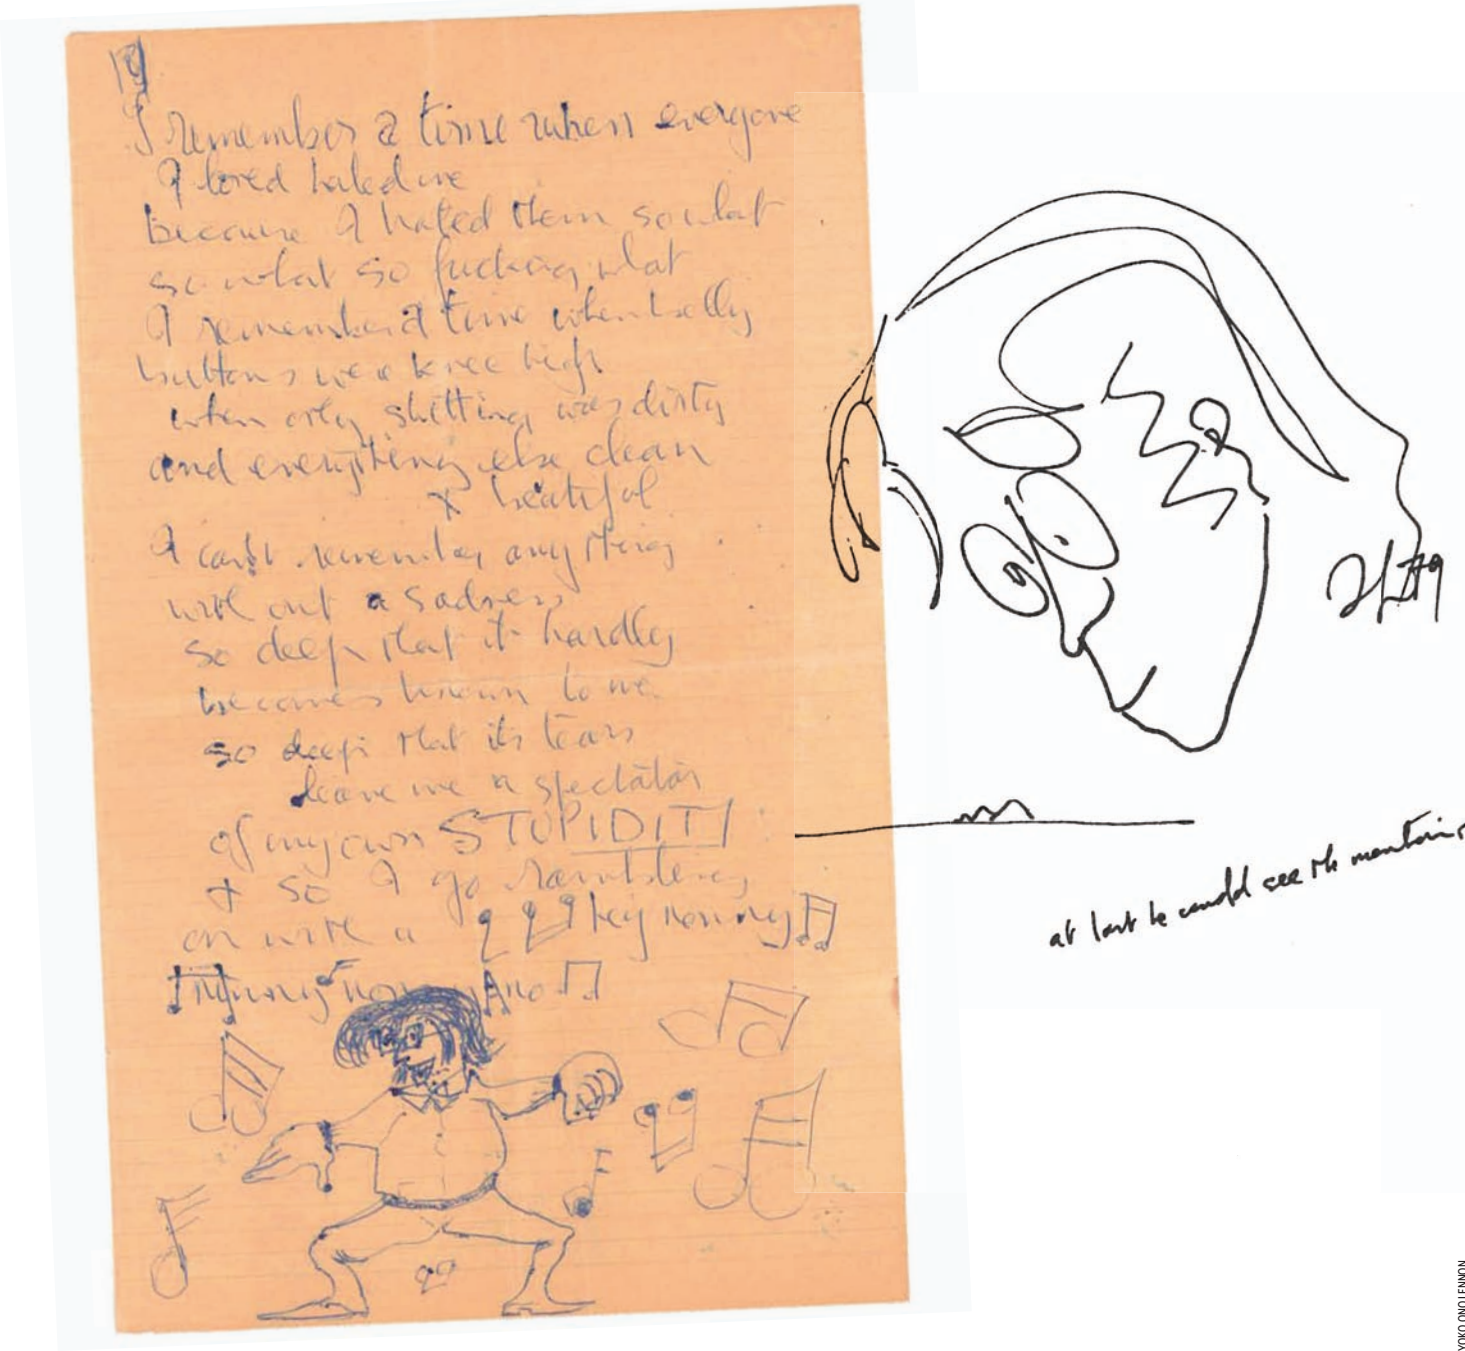 I remember a time when everyone
I loved hated me
because I hated them so what
so what so fucking what
I remember a time when belly
buttons were knee high
when only shitting was dirty
and everything else clean
+ beatiful
I can't remember anything
with out a sadness
so deep that it hardly
becomes known to me
so deep that its tears
leave me a spectator
of my own STUPIDITY
+ so I go rambling
on with a hey nonny
nonny nonny no
at last he could see the mountains
YOKO ONO LENNON